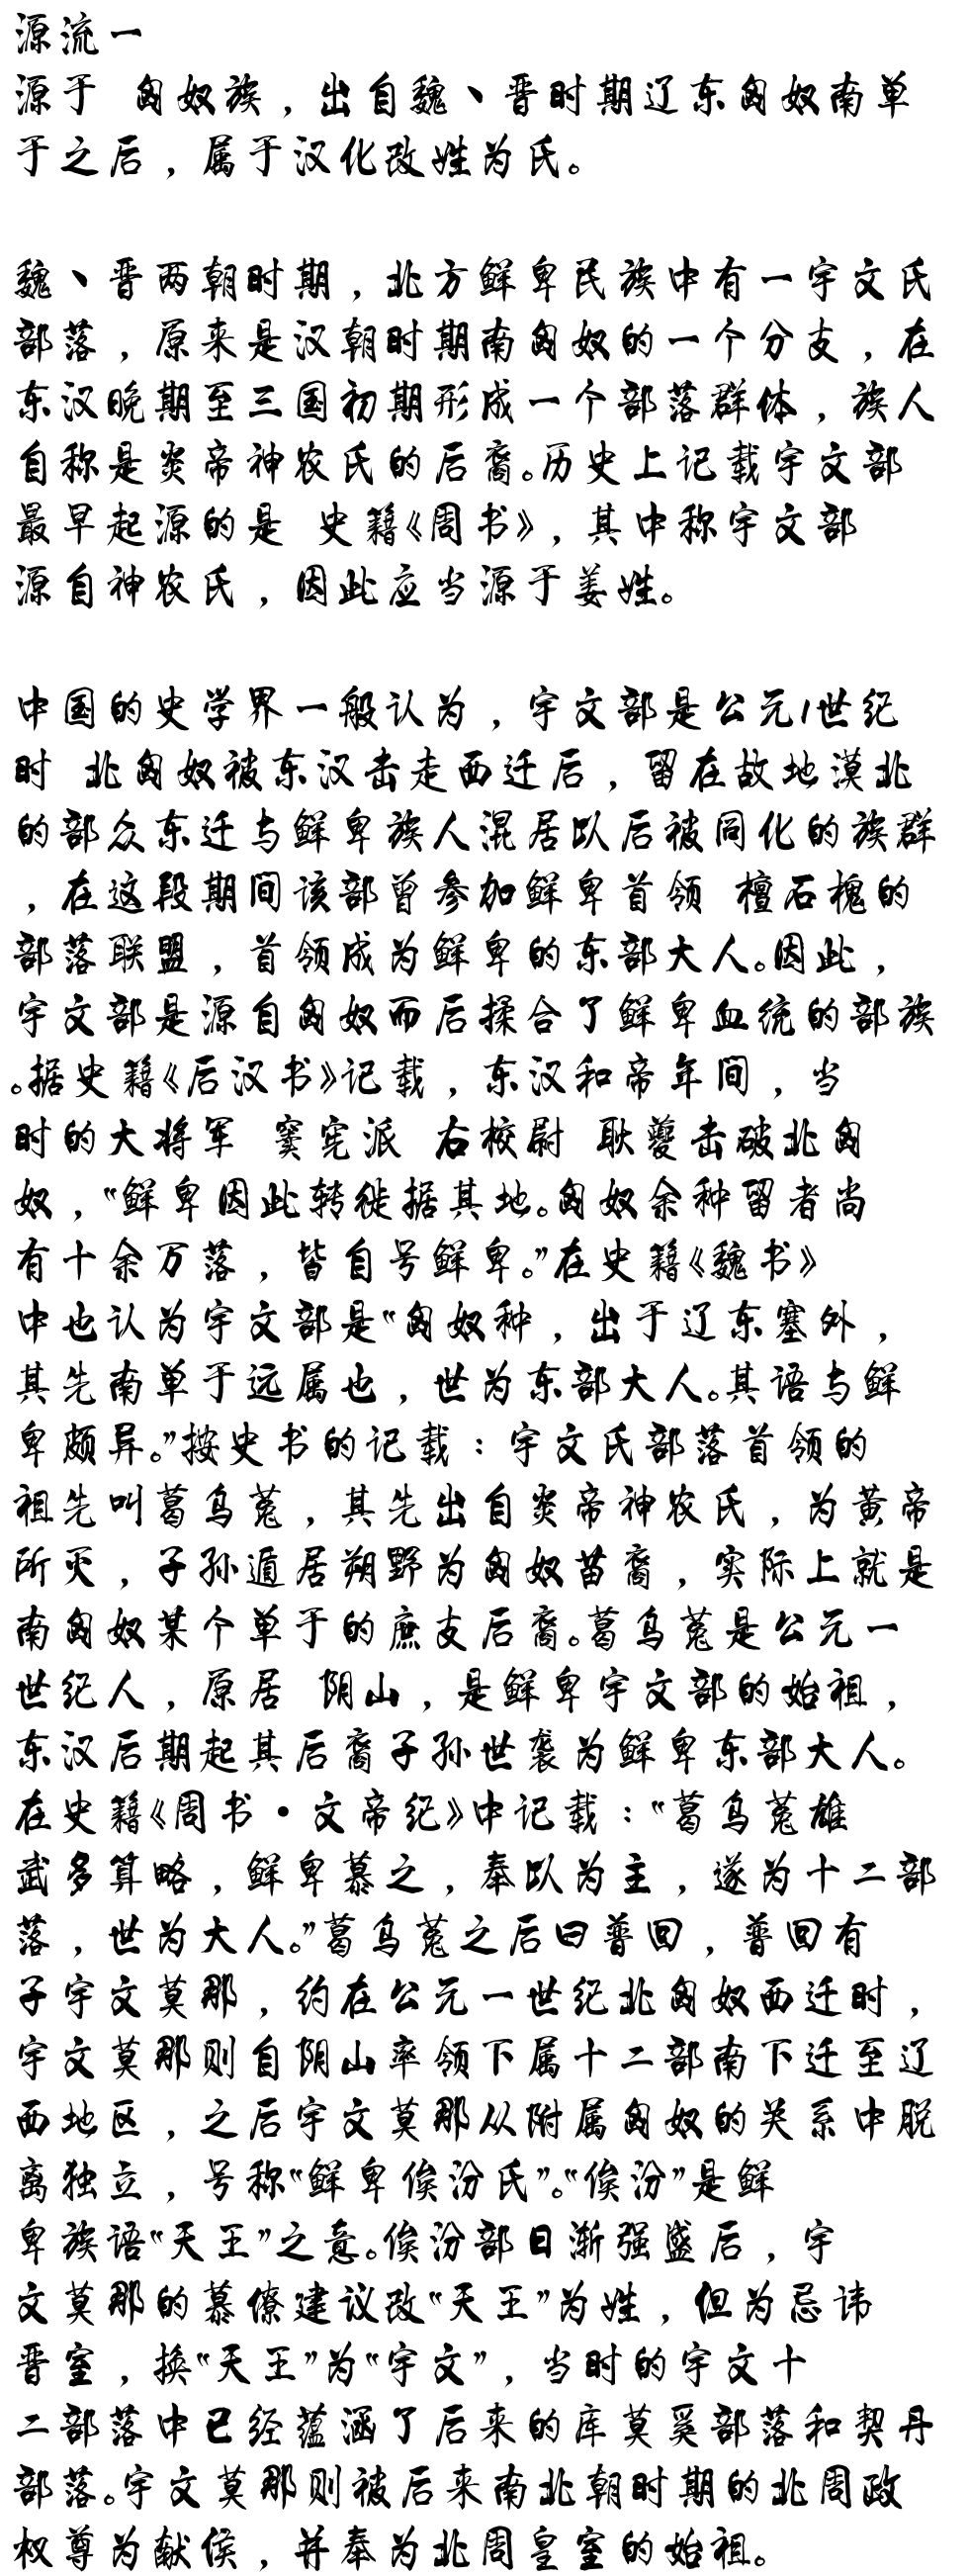 源流一
源于 匈奴族，出自魏、晋时期辽东匈奴南单
于之后，属于汉化改姓为氏。
魏、晋两朝时期，北方鲜卑民族中有一宇文氏
部落，原来是汉朝时期南匈奴的一个分支，在
东汉晚期至三国初期形成一个部落群体，族人
自称是炎帝神农氏的后裔。历史上记载宇文部
最早起源的是 史籍《周书》，其中称宇文部
源自神农氏，因此应当源于姜姓。
中国的史学界一般认为，宇文部是公元1世纪
时 北匈奴被东汉击走西迁后，留在故地漠北
的部众东迁与鲜卑族人混居以后被同化的族群
，在这段期间该部曾参加鲜卑首领 檀石槐的
部落联盟，首领成为鲜卑的东部大人。因此，
宇文部是源自匈奴而后揉合了鲜卑血统的部族
。据史籍《后汉书》记载，东汉和帝年间，当
时的大将军 窦宪派 右校尉 耿夔击破北匈
奴，“鲜卑因此转徙据其地。匈奴余种留者尚
有十余万落，皆自号鲜卑。”在史籍《魏书》
中也认为宇文部是“匈奴种，出于辽东塞外，
其先南单于远属也，世为东部大人。其语与鲜
卑颇异。”按史书的记载：宇文氏部落首领的
祖先叫葛乌菟，其先出自炎帝神农氏，为黄帝
所灭，子孙遁居朔野为匈奴苗裔，实际上就是
南匈奴某个单于的庶支后裔。葛乌菟是公元一
世纪人，原居 阴山，是鲜卑宇文部的始祖，
东汉后期起其后裔子孙世袭为鲜卑东部大人。
在史籍《周书·文帝纪》中记载：“葛乌菟雄
武多算略，鲜卑慕之，奉以为主，遂为十二部
落，世为大人。”葛乌菟之后曰普回，普回有
子宇文莫那，约在公元一世纪北匈奴西迁时，
宇文莫那则自阴山率领下属十二部南下迁至辽
西地区，之后宇文莫那从附属匈奴的关系中脱
离独立，号称“鲜卑俟汾氏”。“俟汾”是鲜
卑族语“天王”之意。俟汾部日渐强盛后，宇
文莫那的慕僚建议改“天王”为姓，但为忌讳
晋室，换“天王”为“宇文”，当时的宇文十
二部落中已经蕴涵了后来的库莫奚部落和契丹
部落。宇文莫那则被后来南北朝时期的北周政
权尊为献侯，并奉为北周皇室的始祖。